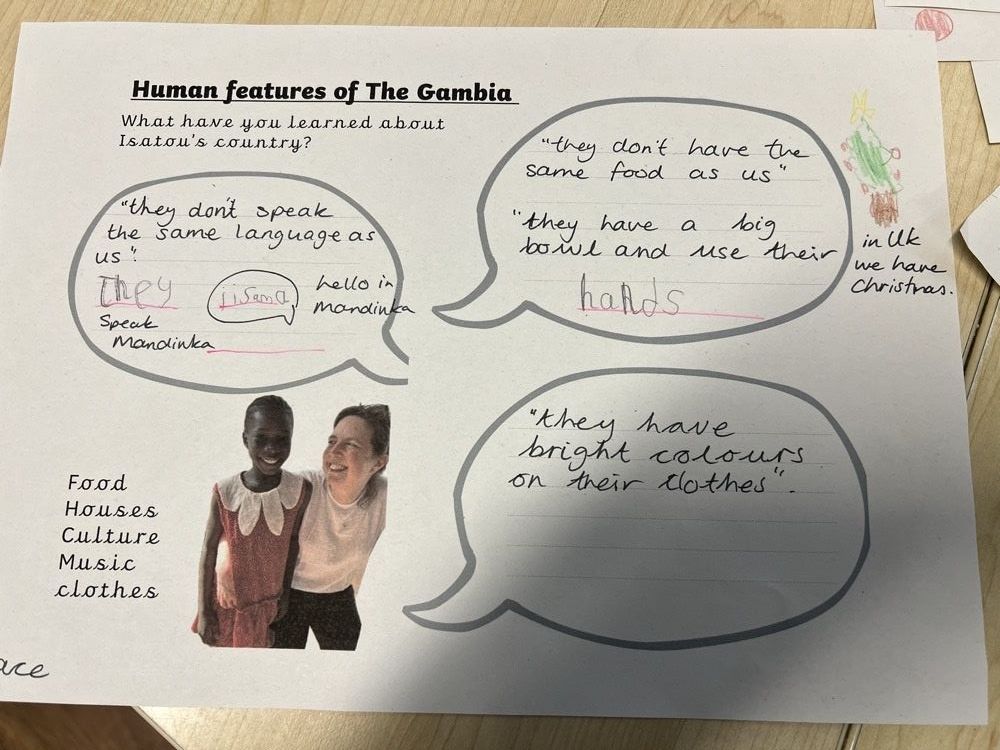 Human features of The Gambia
What have you learned about
Isatou's country?
"they don't speak
the same language as
us".
They
Speak
Mandinka
hello in
Mandinka
"they don't have the
same food as us"
"they have a big
bowl and use their
hands
in Uk
we have
Christmas.
"they have
bright colours
on their clothes".
Food
Houses
Culture
Music
clothes